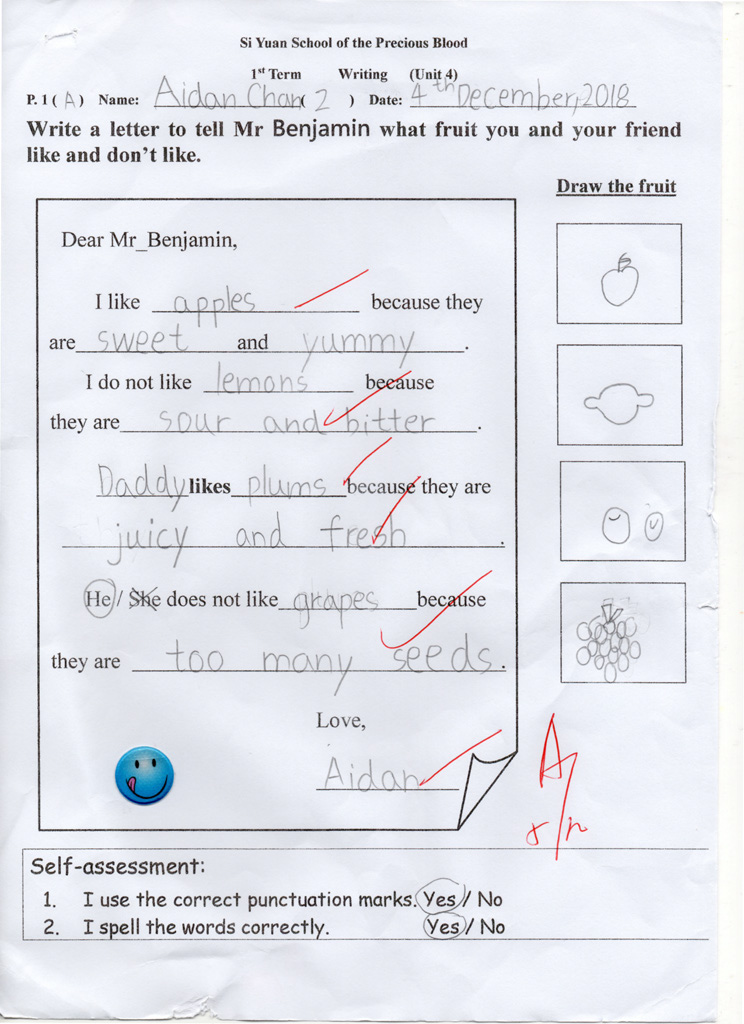 Si Yuan School of the Precious Blood
1st Term Writing (Unit 4)
P. 1 ( A ) Name: Aidan Chan( 2 ) Date: 4th December, 2018
Write a letter to tell Mr Benjamin what fruit you and your friend
like and don't like.
Draw the fruit
Dear Mr_Benjamin,
I like apples because they
are sweet and yummy.
I do not like lemons because
they are sour and bitter.
Daddy likes plums because they are
juicy and fresh.
He / She does not like grapes because
they are too many seeds.
Love,
Aidan
A
Self-assessment:
1. I use the correct punctuation marks. Yes / No
2. I spell the words correctly. Yes / No